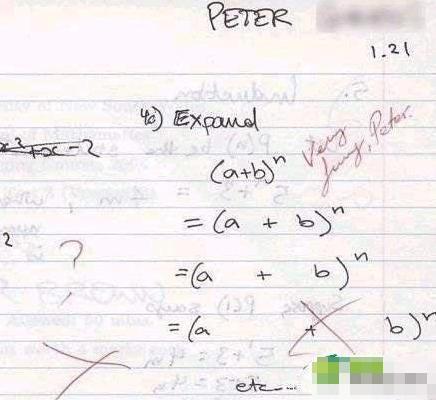 PETER
1.21
4c) Expand
x³+x-2
(a+b)ⁿ
Very
funny, Peter.
= (a + b)ⁿ
2
?
=(a + b)ⁿ
= (a + b)ⁿ
etc...